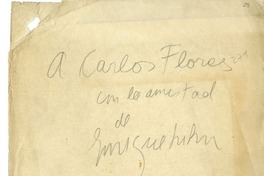 A Carlos Flores
con la amistad
de
Enrique Lihn